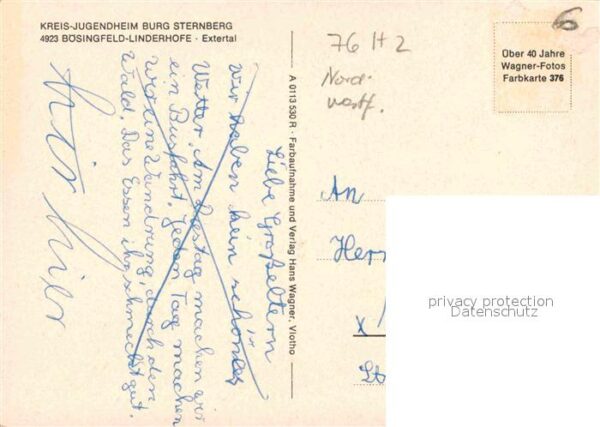 KREIS-JUGENDHEIM BURG STERNBERG
4923 BÖSINGFELD-LINDERHOFE · Extertal
Liebe Großeltern
Wir haben hier schönes
Wetter. Am Dienstag machen wir
ein Busfahrt. Jeden Tag machen
wir eine Wandrung, durch den
Wald. Das Essen ihr schmeckt gut.
A 0113 530 R · Farbaufnahme und Verlag Hans Wagner, Vlotho
76 H 2
Nord-
westf.
6
Über 40 Jahre
Wagner-Fotos
Farbkarte 376
An
Herr
x/
St
privacy protection
Datenschutz